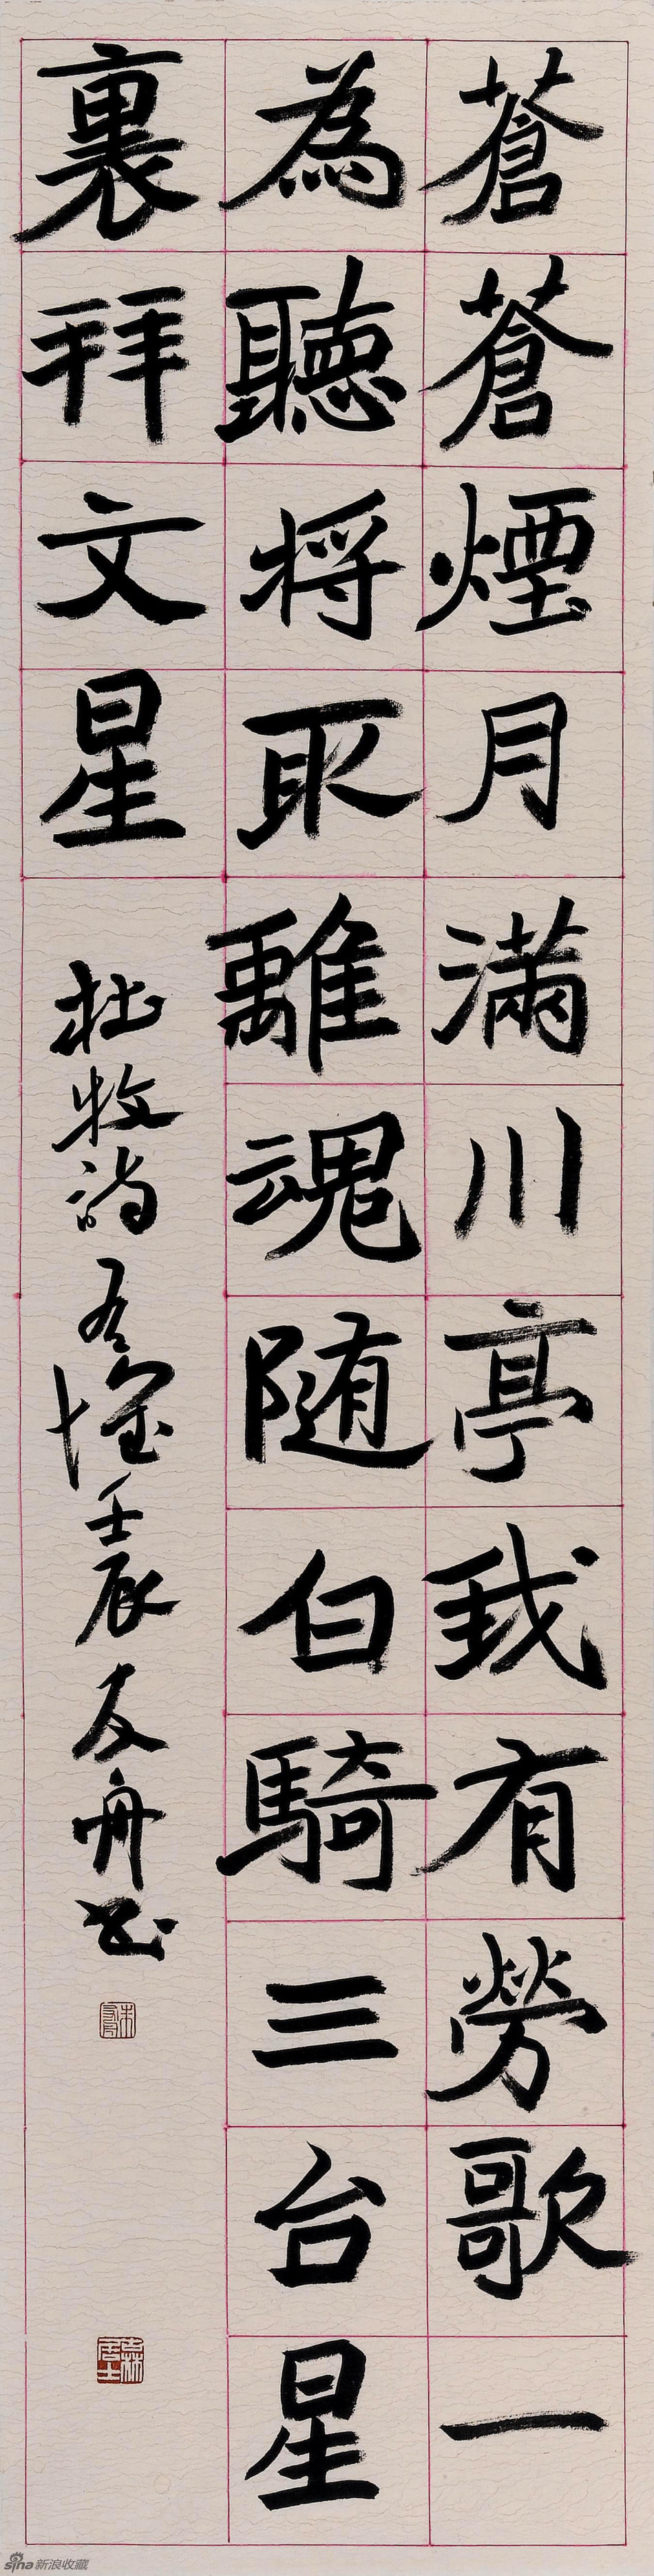 蒼蒼煙月滿川亭我有勞歌一
為聽将取離魂随白騎三台星
裏拜文星
杜牧詩 壬辰友舟书
sina新浪收藏